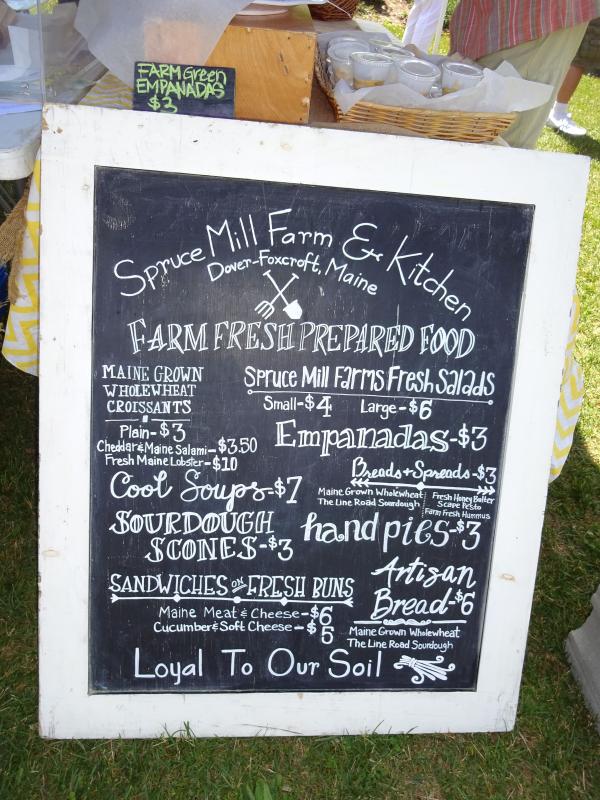 FARM Green
EMPANADAS
$3
Spruce Mill Farm & Kitchen
Dover-Foxcroft, Maine
FARM FRESH PREPARED FOOD
MAINE GROWN
WHOLEWHEAT
CROISSANTS
Plain-$3
Cheddar & Maine Salami-$3.50
Fresh Maine Lobster-$10
Cool Soups-$7
SOURDOUGH
SCONES-$3
SANDWICHES on FRESH BUNS
Maine Meat & Cheese-$6
Cucumber & Soft Cheese-$5
Spruce Mill Farms Fresh Salads
Small-$4 Large-$6
Empanadas-$3
Breads+Spreads-$3
Maine Grown Wholewheat
The Line Road Sourdough
Fresh Honey Butter
Scape Pesto
Farm Fresh Hummus
hand pies-$3
Artisan
Bread-$6
Maine Grown Wholewheat
The Line Road Sourdough
Loyal To Our Soil